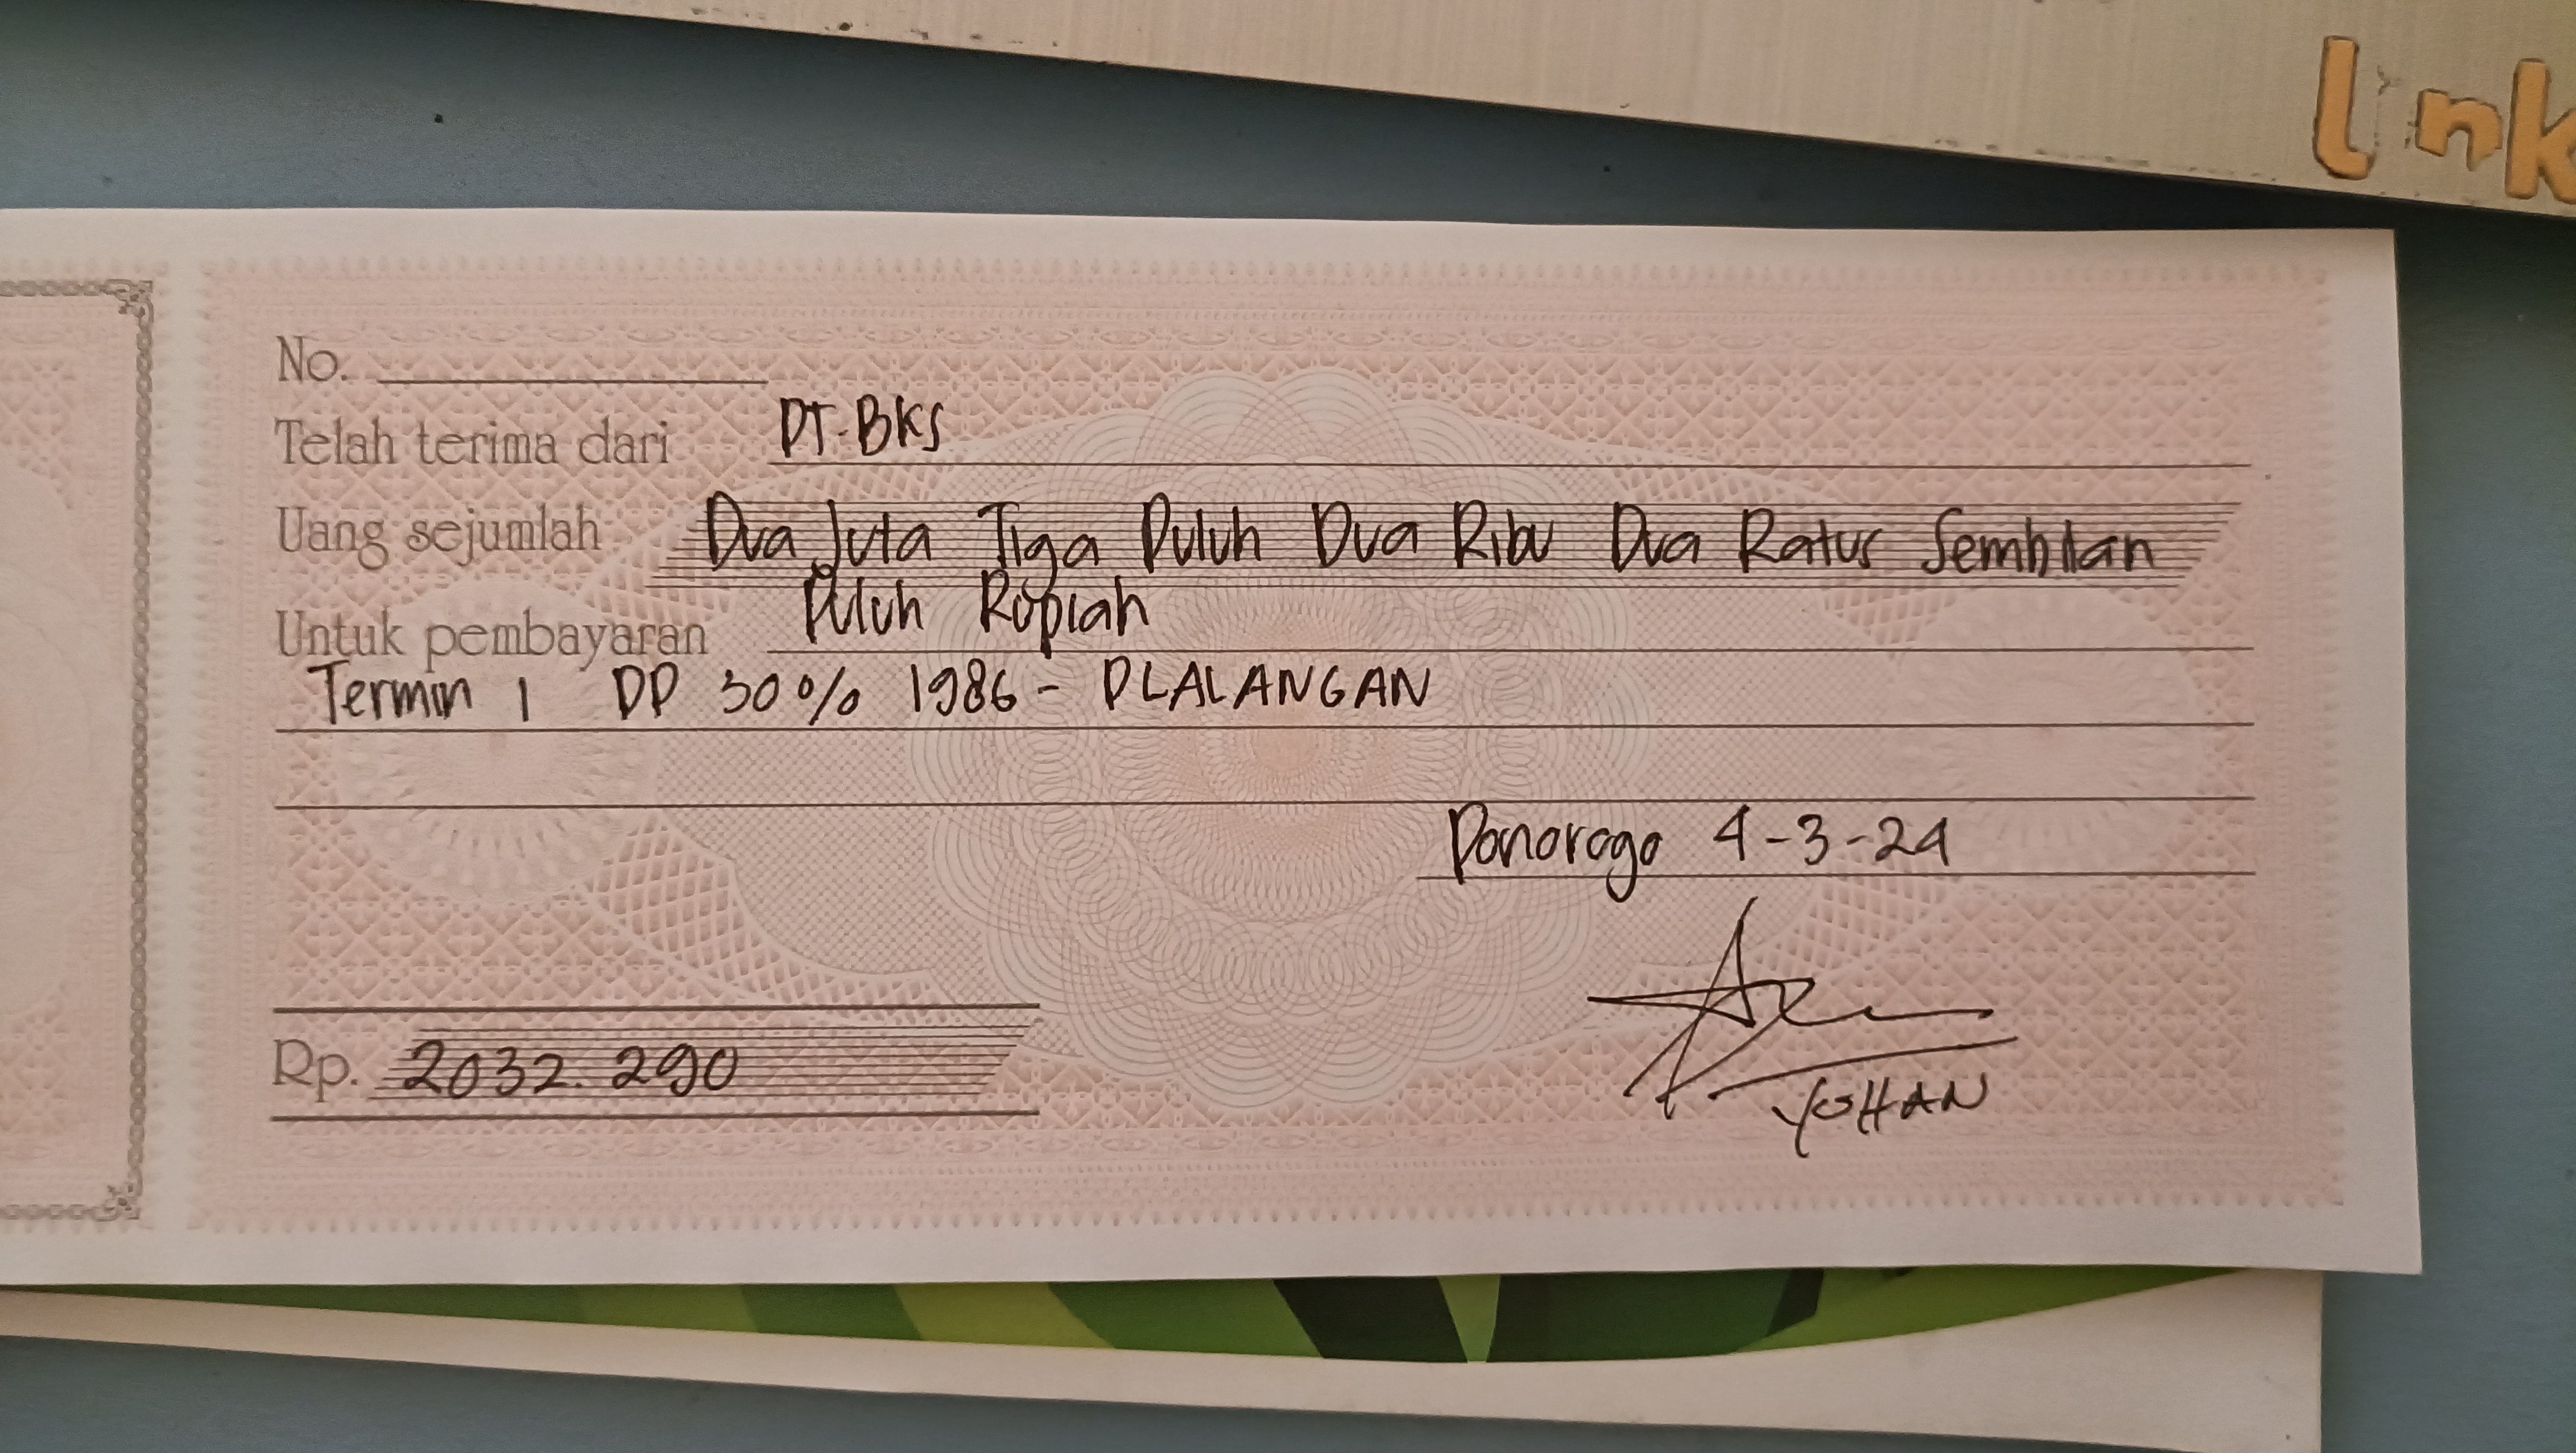 link
No.
Telah terima dari PT. BKS
Uang sejumlah Dua Juta Tiga Puluh Dua Ribu Dua Ratus Sembilan
Puluh Rupiah
Untuk pembayaran
Termin 1 DP 30% 1986 - PLALANGAN
Ponorogo 4-3-24
Rp. 2032.290
YOHAN